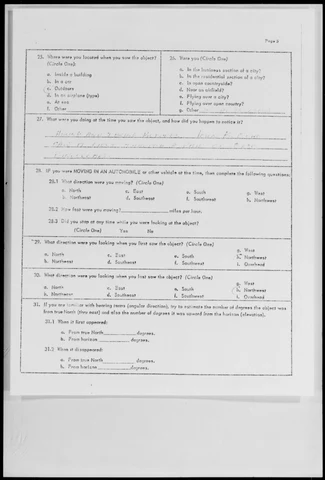 Page 6
25. Where were you located when you saw the object?
(Circle One):
a. Inside a building
b. In a car
c. Outdoors
d. In an airplane (type)
e. At sea
f. Other
26. Were you (Circle One)
a. In the business section of a city?
b. In the residential section of a city?
c. In open countryside?
d. Near an airfield?
e. Flying over a city?
f. Flying over open country?
g. Other
27. What were you doing at the time you saw the object, and how did you happen to notice it?
28. IF you were MOVING IN AN AUTOMOBILE or other vehicle at the time, then complete the following questions:
28.1 What direction were you moving? (Circle One)
a. North
c. East
e. South
g. West
b. Northeast
d. Southeast
f. Southwest
h. Northwest
28.2 How fast were you moving? miles per hour.
28.3 Did you stop at any time while you were looking at the object?
(Circle One) Yes No
29. What direction were you looking when you first saw the object? (Circle One)
a. North
c. East
e. South
g. West
b. Northeast
d. Southeast
f. Southwest
h. Northwest
i. Overhead
30. What direction were you looking when you last saw the object? (Circle One)
a. North
c. East
e. South
g. West
b. Northeast
d. Southeast
f. Southwest
h. Northwest
i. Overhead
31. If you are familiar with bearing terms (angular direction), try to estimate the number of degrees the object was
from true North (thru east) and also the number of degrees it was upward from the horizon (elevation).
31.1 When it first appeared:
a. From true North degrees.
b. From horizon degrees.
31.2 When it disappeared:
a. From true North degrees.
b. From horizon degrees.